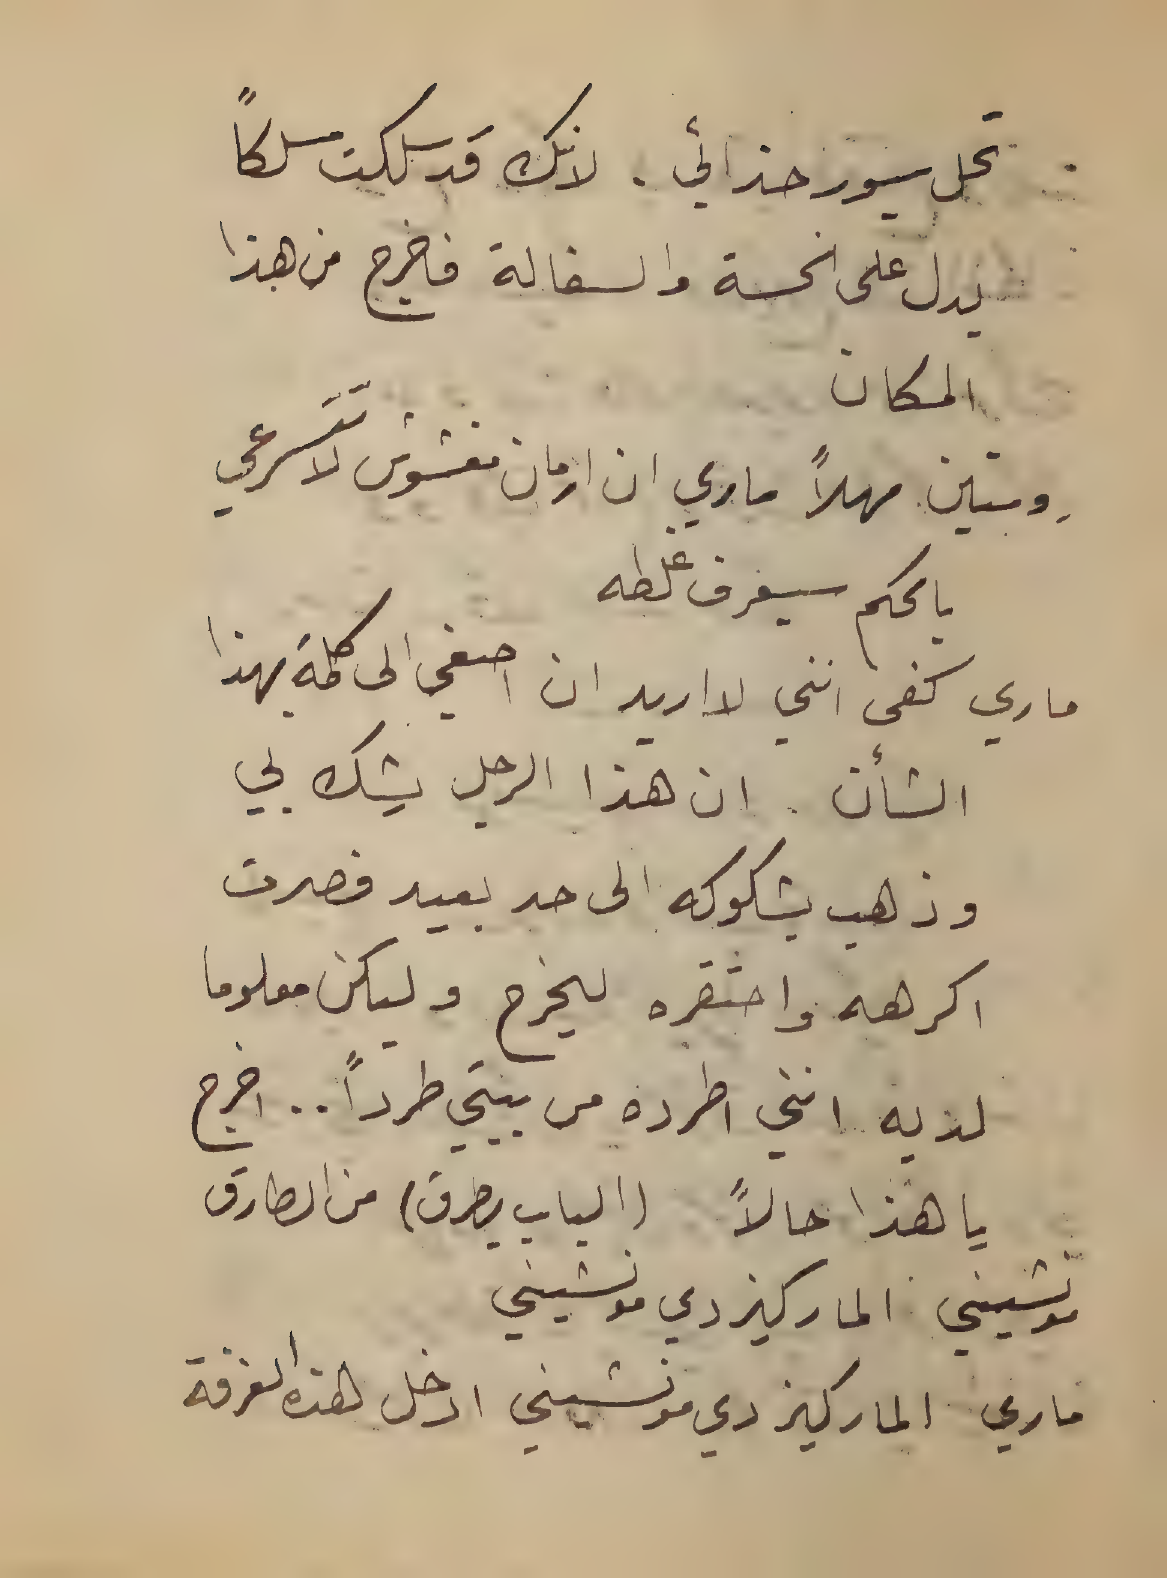 تحل سيور حذائي . لانك قد سلكت مسلكاً
يدل على الخسة والسفالة فاخرج من هذا
المكان
ومتين مهلاً ماري ان ارمان مغشوش لا تتسرعي
بالحكم سيعرف غلطه
ماري كفى انني لا اريد ان اصغي الى كلمة بهذا
الشأن . ان هذا الرجل يشك بي
وذهب بشكوكه الى حد بعيد فصرت
اكرهه واحتقره ليخرج وليكن معلوما
لديه انني اطرده من بيتي طرداً .. اخرج
يا هذا حالاً (الباب يطرق) من الطارق
مونشيني الماركيز دي مونشيني
ماري الماركيز دي مونشيني ادخل لهذه الغرفة